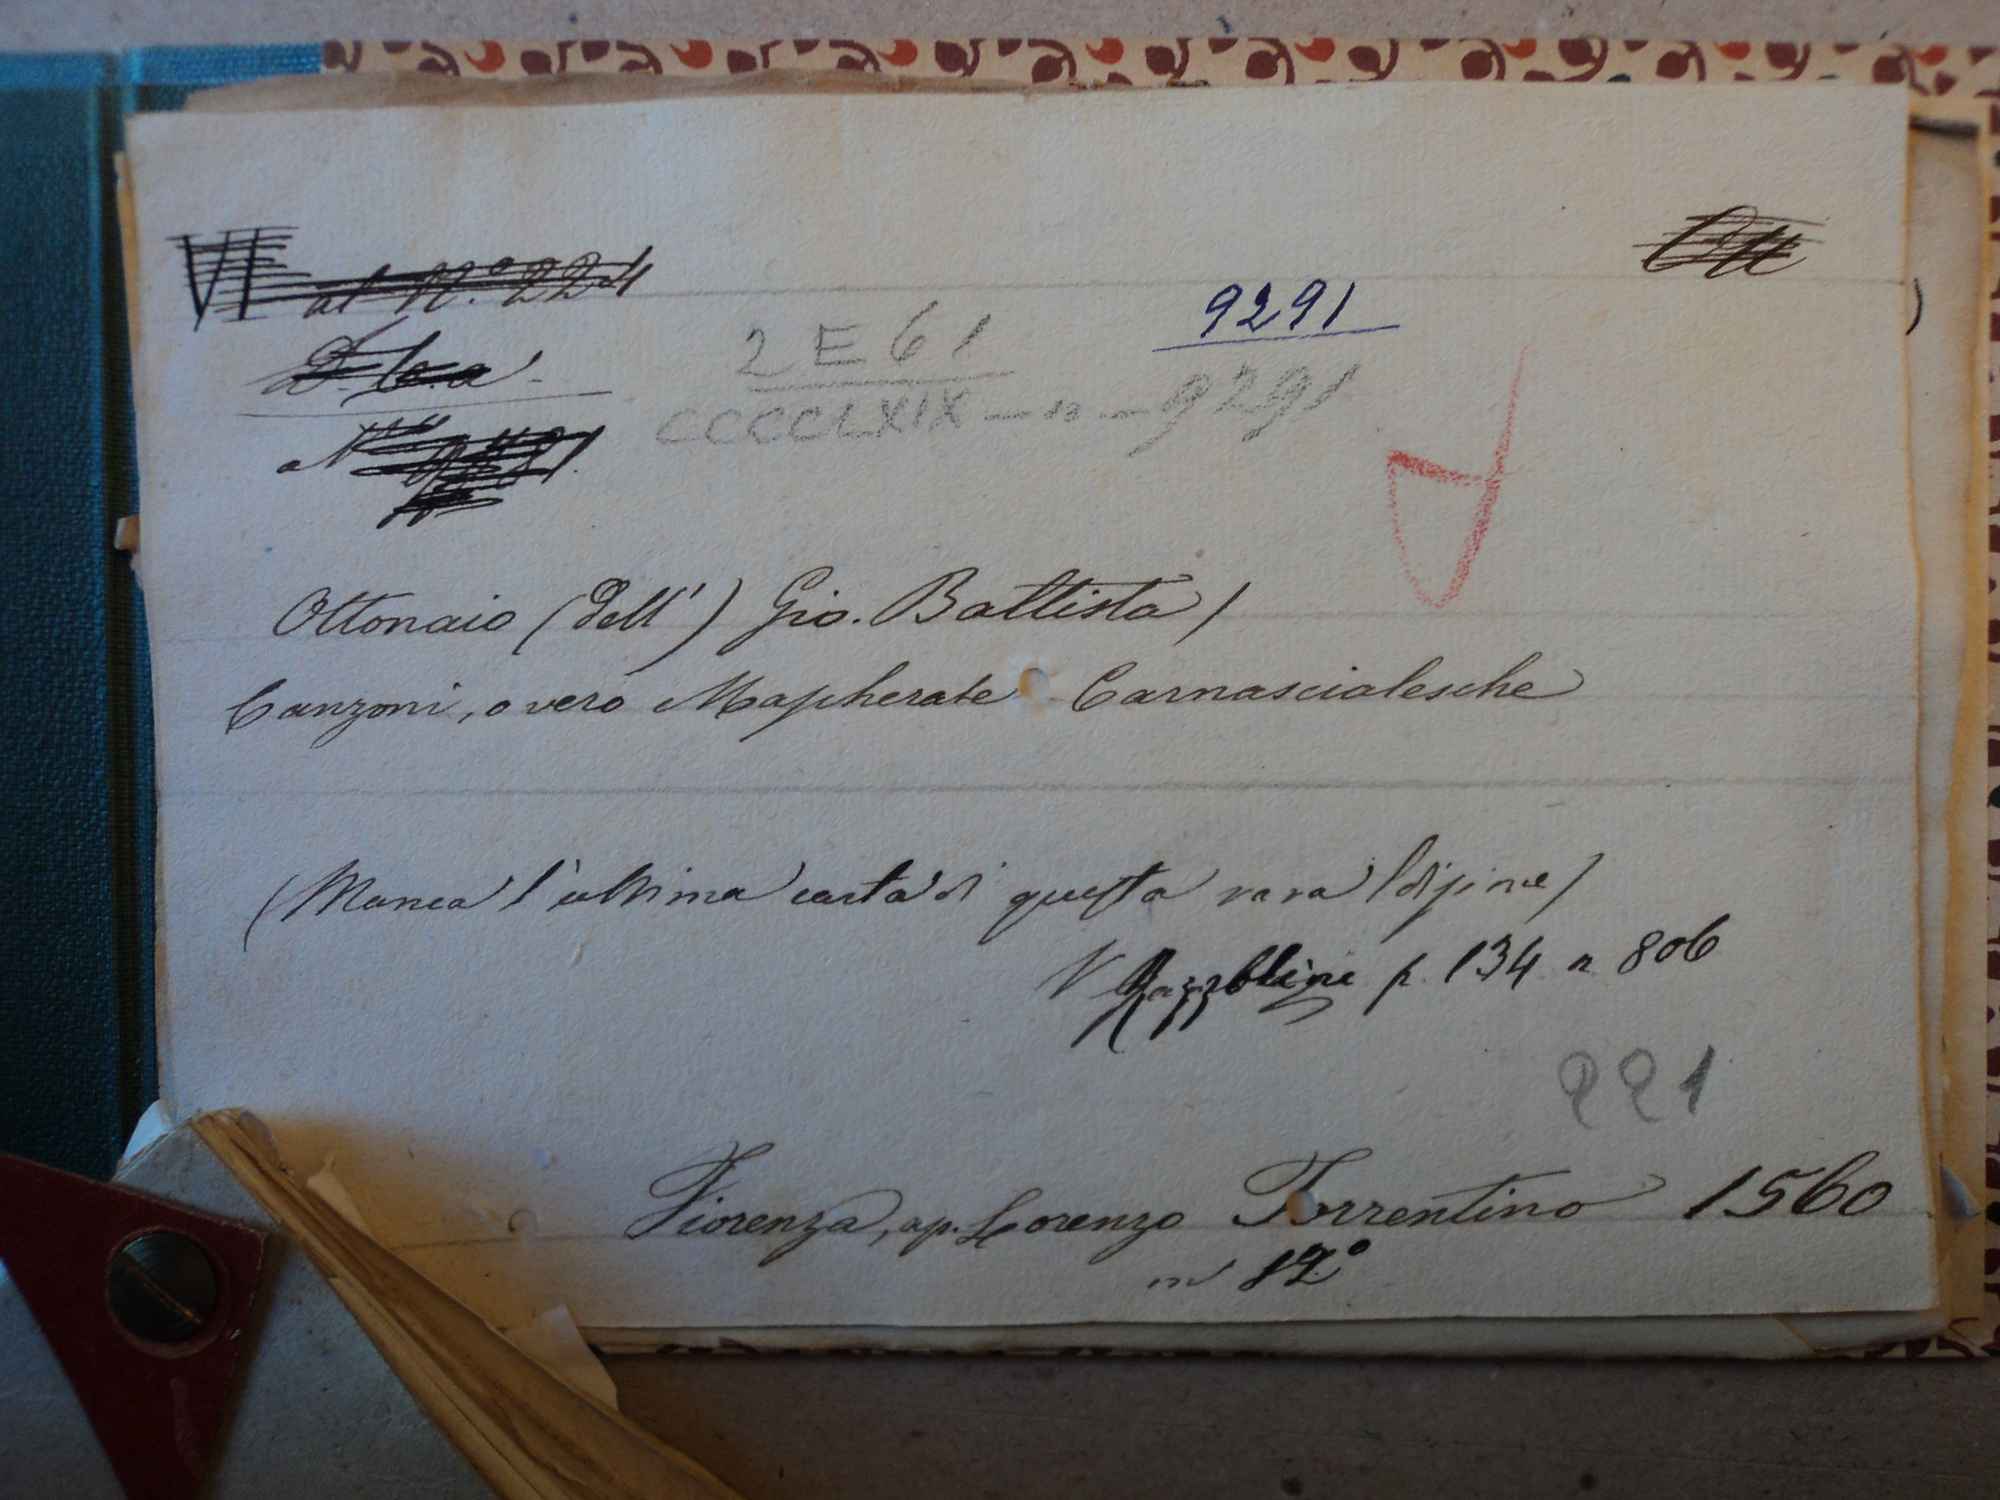 VI al N.° 224
9291
2 E 61
CCCCCLXIX — 13 — 9291
Ottonaio (Dell') Gio. Battista)
Canzoni, o vero Mascherate Carnascialesche
(Manca l'ultima carta di questa rara edizione)
V Razzolini p. 134 n 806
221
Fiorenza, ap. Lorenzo Torrentino 1560
in 12°